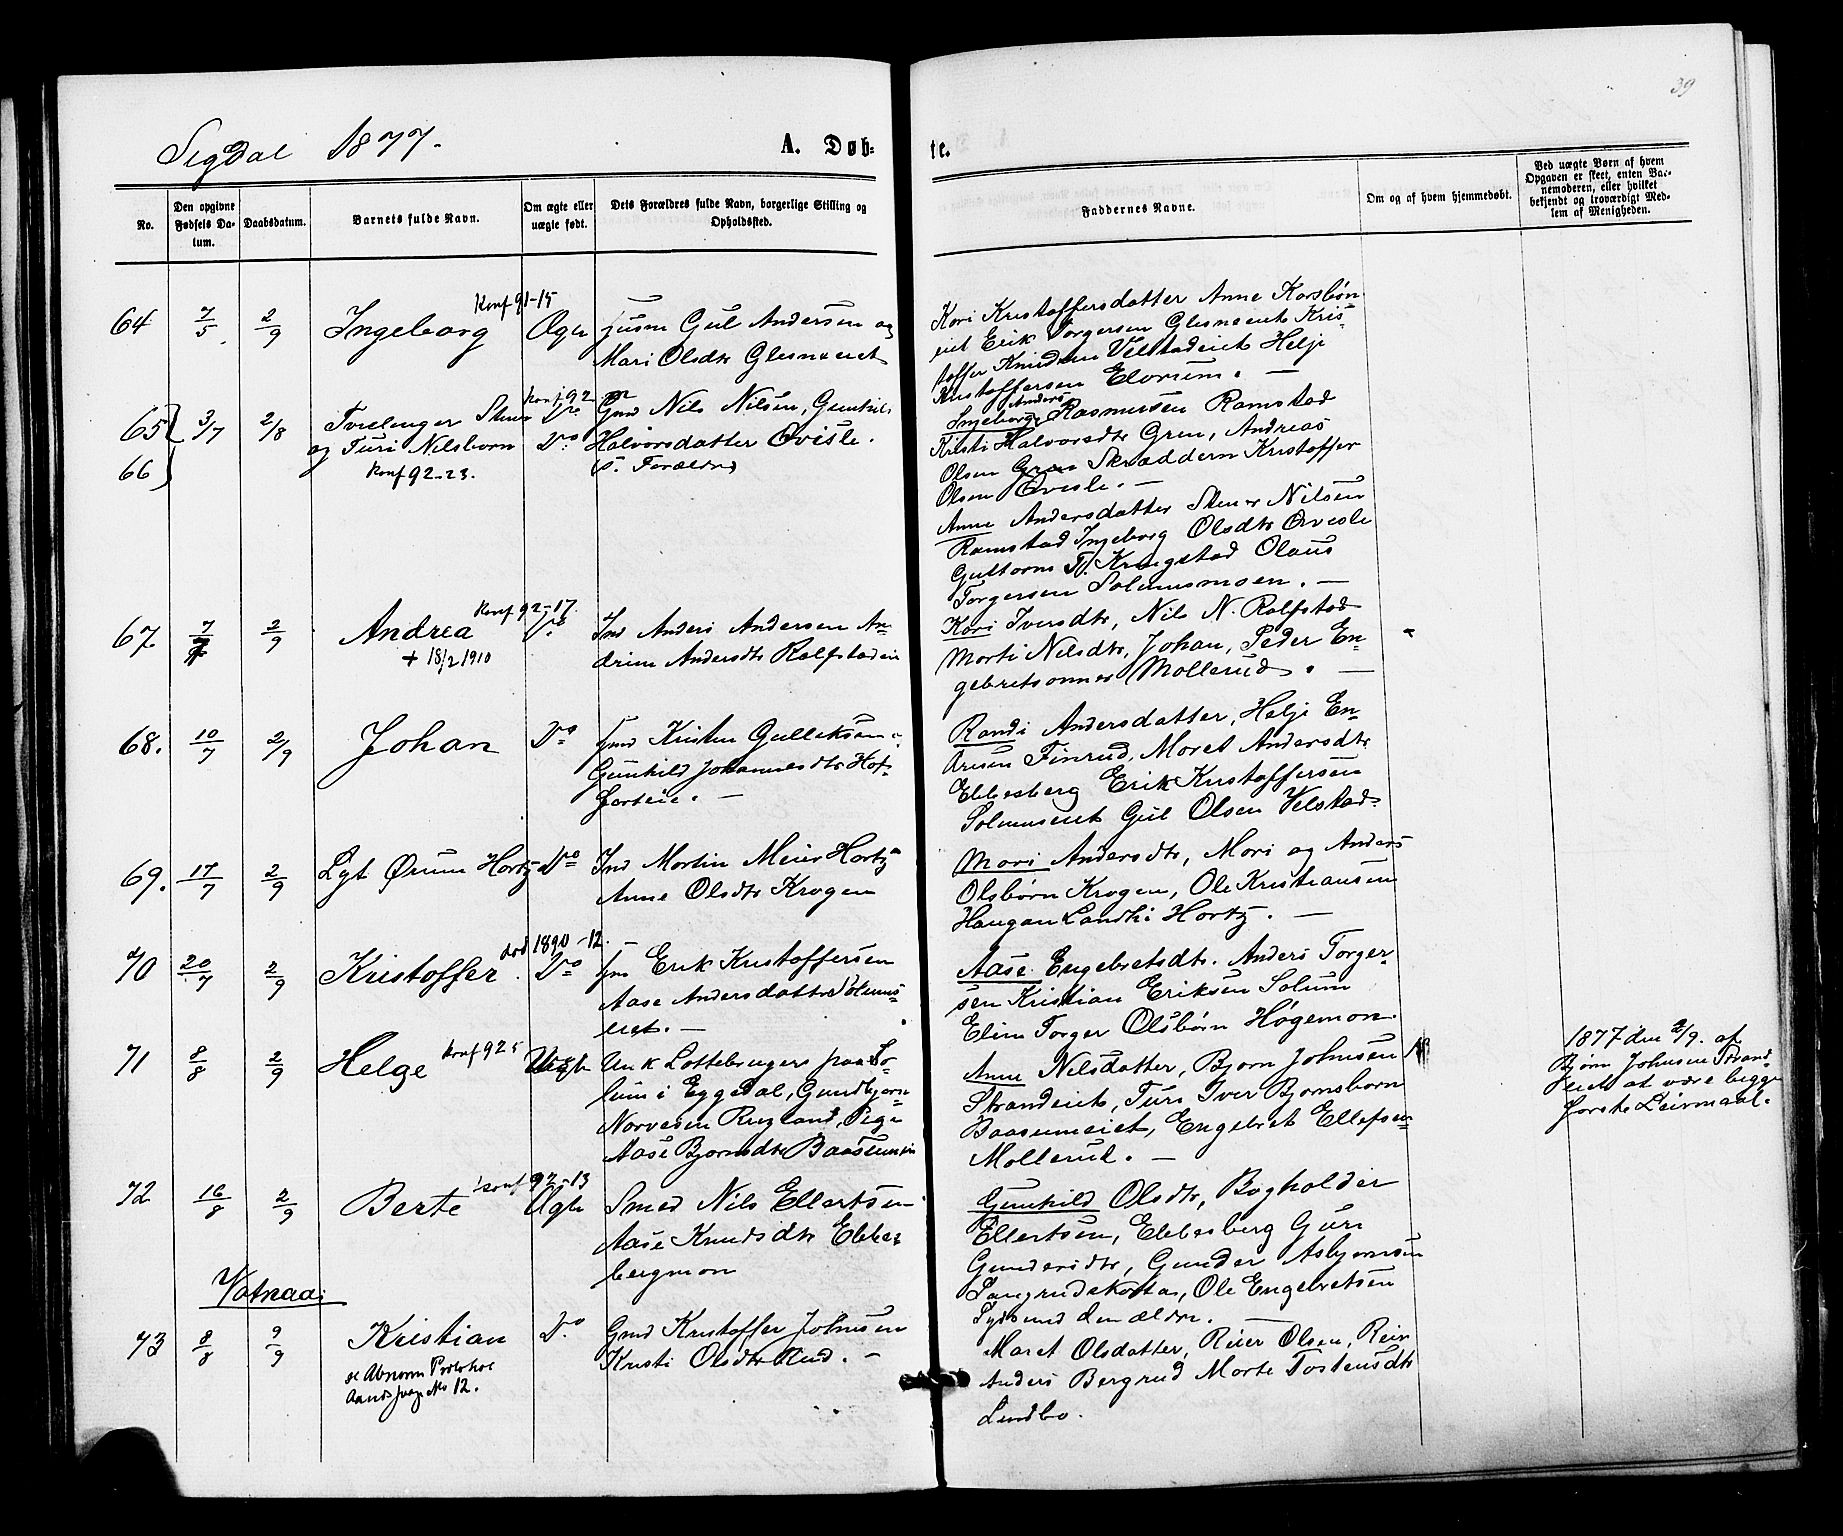 39
Sigdal 1877.
A. Døb-
te.
No.
Den opgivne Fødsels Da-tum.
Daabsdatum.
Barnets fulde Navn.
Om ægte eller uægte født.
Dets Forældres fulde Navn, borgerlige Stilling og Opholdssted.
Faddernes Navne.
Om og af hvem hjemmedøbt.
Ved uægte Børn af hvem Opgaven er skeet, enten Bar-nemoderen, eller hvilket bekjendt og troværdigt Med-lem af Menigheden.
64 7/5 2/9 Ingeborg Konf 91-15 Ægte Gul Andersen og
Mari Olsdtr Glesneeiet
Kari Kristoffersdatter Anne Korsbøn
eiet Erik Torgersen Glesneeiet Kris-
toffer Knudsen Velstadeiet Helje
Kristoffersen Elorum. —
65 3/7 2/8 Tvillinger Stener Konf 92 Do Gmd Nils Nilsen, Gunhild
66 og Turi Nilsborn Do Halvorsdatter Qvisle.
Konf 92-23. Forældre
Ingeborg Anders Rasmussen Ramstad
Kristi Halvorsdtr Gren, Andreas
Olsen Gren Skræddern Kristoffer
Olsen Qvisle. —
Anne Andersdatter Stener Nilsen
Ramstad Ingeborg Olsdtr Qvisle
Guttorm T. Kringstad Olaus
Torgersen Solumsmoen. —
67. 7/7 2/9 Andrea Konf 92-17. Do Ind Anders Andersen An-
+ 18/2 1910 drine Andersdtr Ralfstadeie
Kari Iversdtr, Nils N. Ralfstad
Marti Nilsdtr, Johan, Peder En-
gebretsønner Mollerud. —
68. 10/7 2/9 Johan Do Kristen Gulleksen
Gunhild Johannesdtr Hof-
forteie. —
Randi Andersdatter, Helje En-
dresen Finrud, Maret Andersdtr
Ebbesberg Erik Kristoffersen
Solumseiet Gul Olsen Velstad
69. 17/7 2/9 Lyt Ørum Hortz Do Ind Martin Meier Hortz
Anne Olsdtr Krogen
Mari Andersdtr, Mari og Anders
Olsbørn Krogen, Ole Kristiansen
Haugan Hortz. —
70 20/7 2/9 Kristoffer dod 1890-12. Do Erik Kristoffersen
Aase Andersdatter Solums-
eiet. —
Aase Engebretsdtr. Anders Torger-
sen Kristian Eriksen Solum
Elin Torger Olsbørn Høgemon.
71 8/8 2/9 Helge Konf 92 5 Uægte Unk Lottebruger paa So-
lum i Eggedal, Gundbjørn
Norvesen Rugland, Pige
Aase Bjørnsdtr Baasumeie
Anne Nilsdatter, Bjørn Johnsen
Strandeiet, Turi Iver Bjørnsborn
Baasumeiet, Engebret Ellefsen
Mollerud. —
1877 den 2/9. af
Bjørn Johnsen Strand-
eiet at være begges
første Leiermaal.
72 16/8 2/9 Berte Konf 92-13 Ægte Smed Nils Ellertsen
Aase Knudsdtr Ebbes-
bergmon
Gunhild Olsdtr, Bogholder
Ellertsen, Ebbesberg Guri
Gundersdtr, Gunder Asbjørnsen
Langrudskorta, Ole Engebretsen
den ældre.
Vatnaas
73 8/8 9/9 Kristian Do Gmd Kristoffer Johnsen
Kristi Olsdtr Rud. —
se Abnorm Protokol
Aandssvage No 12.
Maret Olsdatter, Reier Olsen, Reier
Anders Bergrud Marte Tostensdtr
Lindbo.